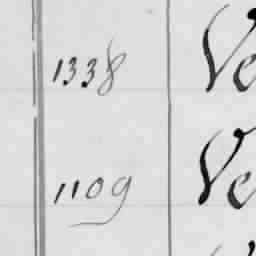 1338 Ve
1109 Ve